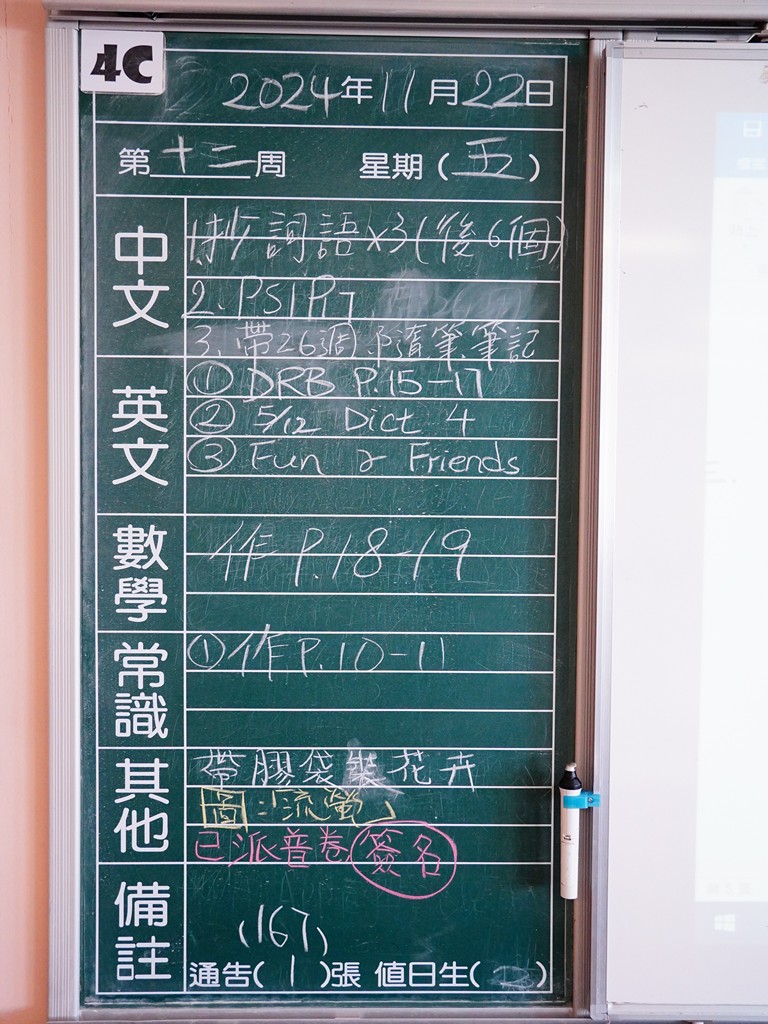 4C
2024年11月22日
第十二周 星期(五)
中文
1.抄詞語x3(後6個)
2. PS1P7
3. 帶26週 隨筆筆記
英文
① DRB P.15-17
② 5/12 Dict 4
③ Fun 2 Friends
數學
作 P.18-19
常識
①作P.10-11
其他
帶膠袋裝花卉
圖:流螢
已派普卷簽名
備註
(167)
通告(1)張 值日生( )